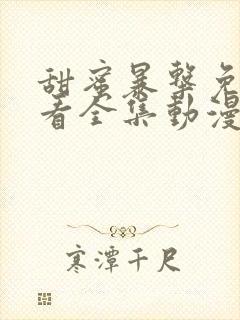 甜蜜暴擊免
看全集動漫
寒潭千尺